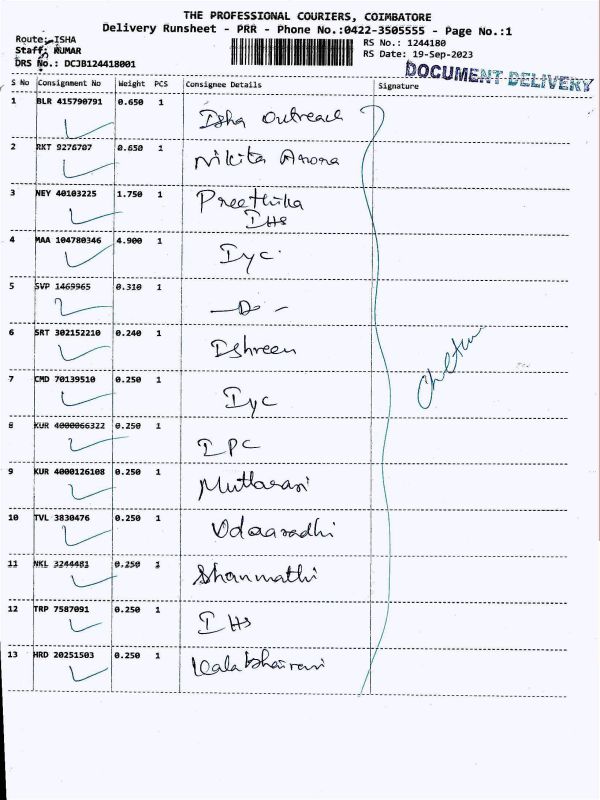 THE PROFESSIONAL COURIERS, COIMBATORE
Delivery Runsheet - PRR - Phone No.:0422-3505555 - Page No.:1
Route: ISHA
RS No.: 1244180
Staff: KUMAR
RS Date: 19-Sep-2023
DRS No.: DCJB124418001
DOCUMENT DELIVERY
S No Consignment No Weight PCS Consignee Details Signature
1 BLR 415790791 0.650 1 Isha Outreach
2 RKT 9276707 0.650 1 Nikita Arora
3 NEY 40103225 1.750 1 Preethika
IHS
4 MAA 104780346 4.900 1 Iyc
5 SVP 1469965 0.310 1 -D-
6 SRT 302152210 0.240 1 Ishreen
7 CMD 70139510 0.250 1 Iyc
8 KUR 4000066322 0.250 1 IPC
9 KUR 4000126108 0.250 1 Mutlarasi
10 TVL 3830476 0.250 1
11 NKL 3244481 0.250 1 Shanmathi
12 TRP 7587091 0.250 1 IHS
13 HRD 20251503 0.250 1 Kalabhairavi